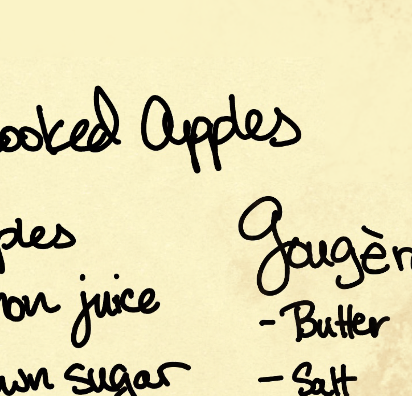 ooked Apples
ples
on juice
wn sugar
Gougèn
- Butter
- Salt